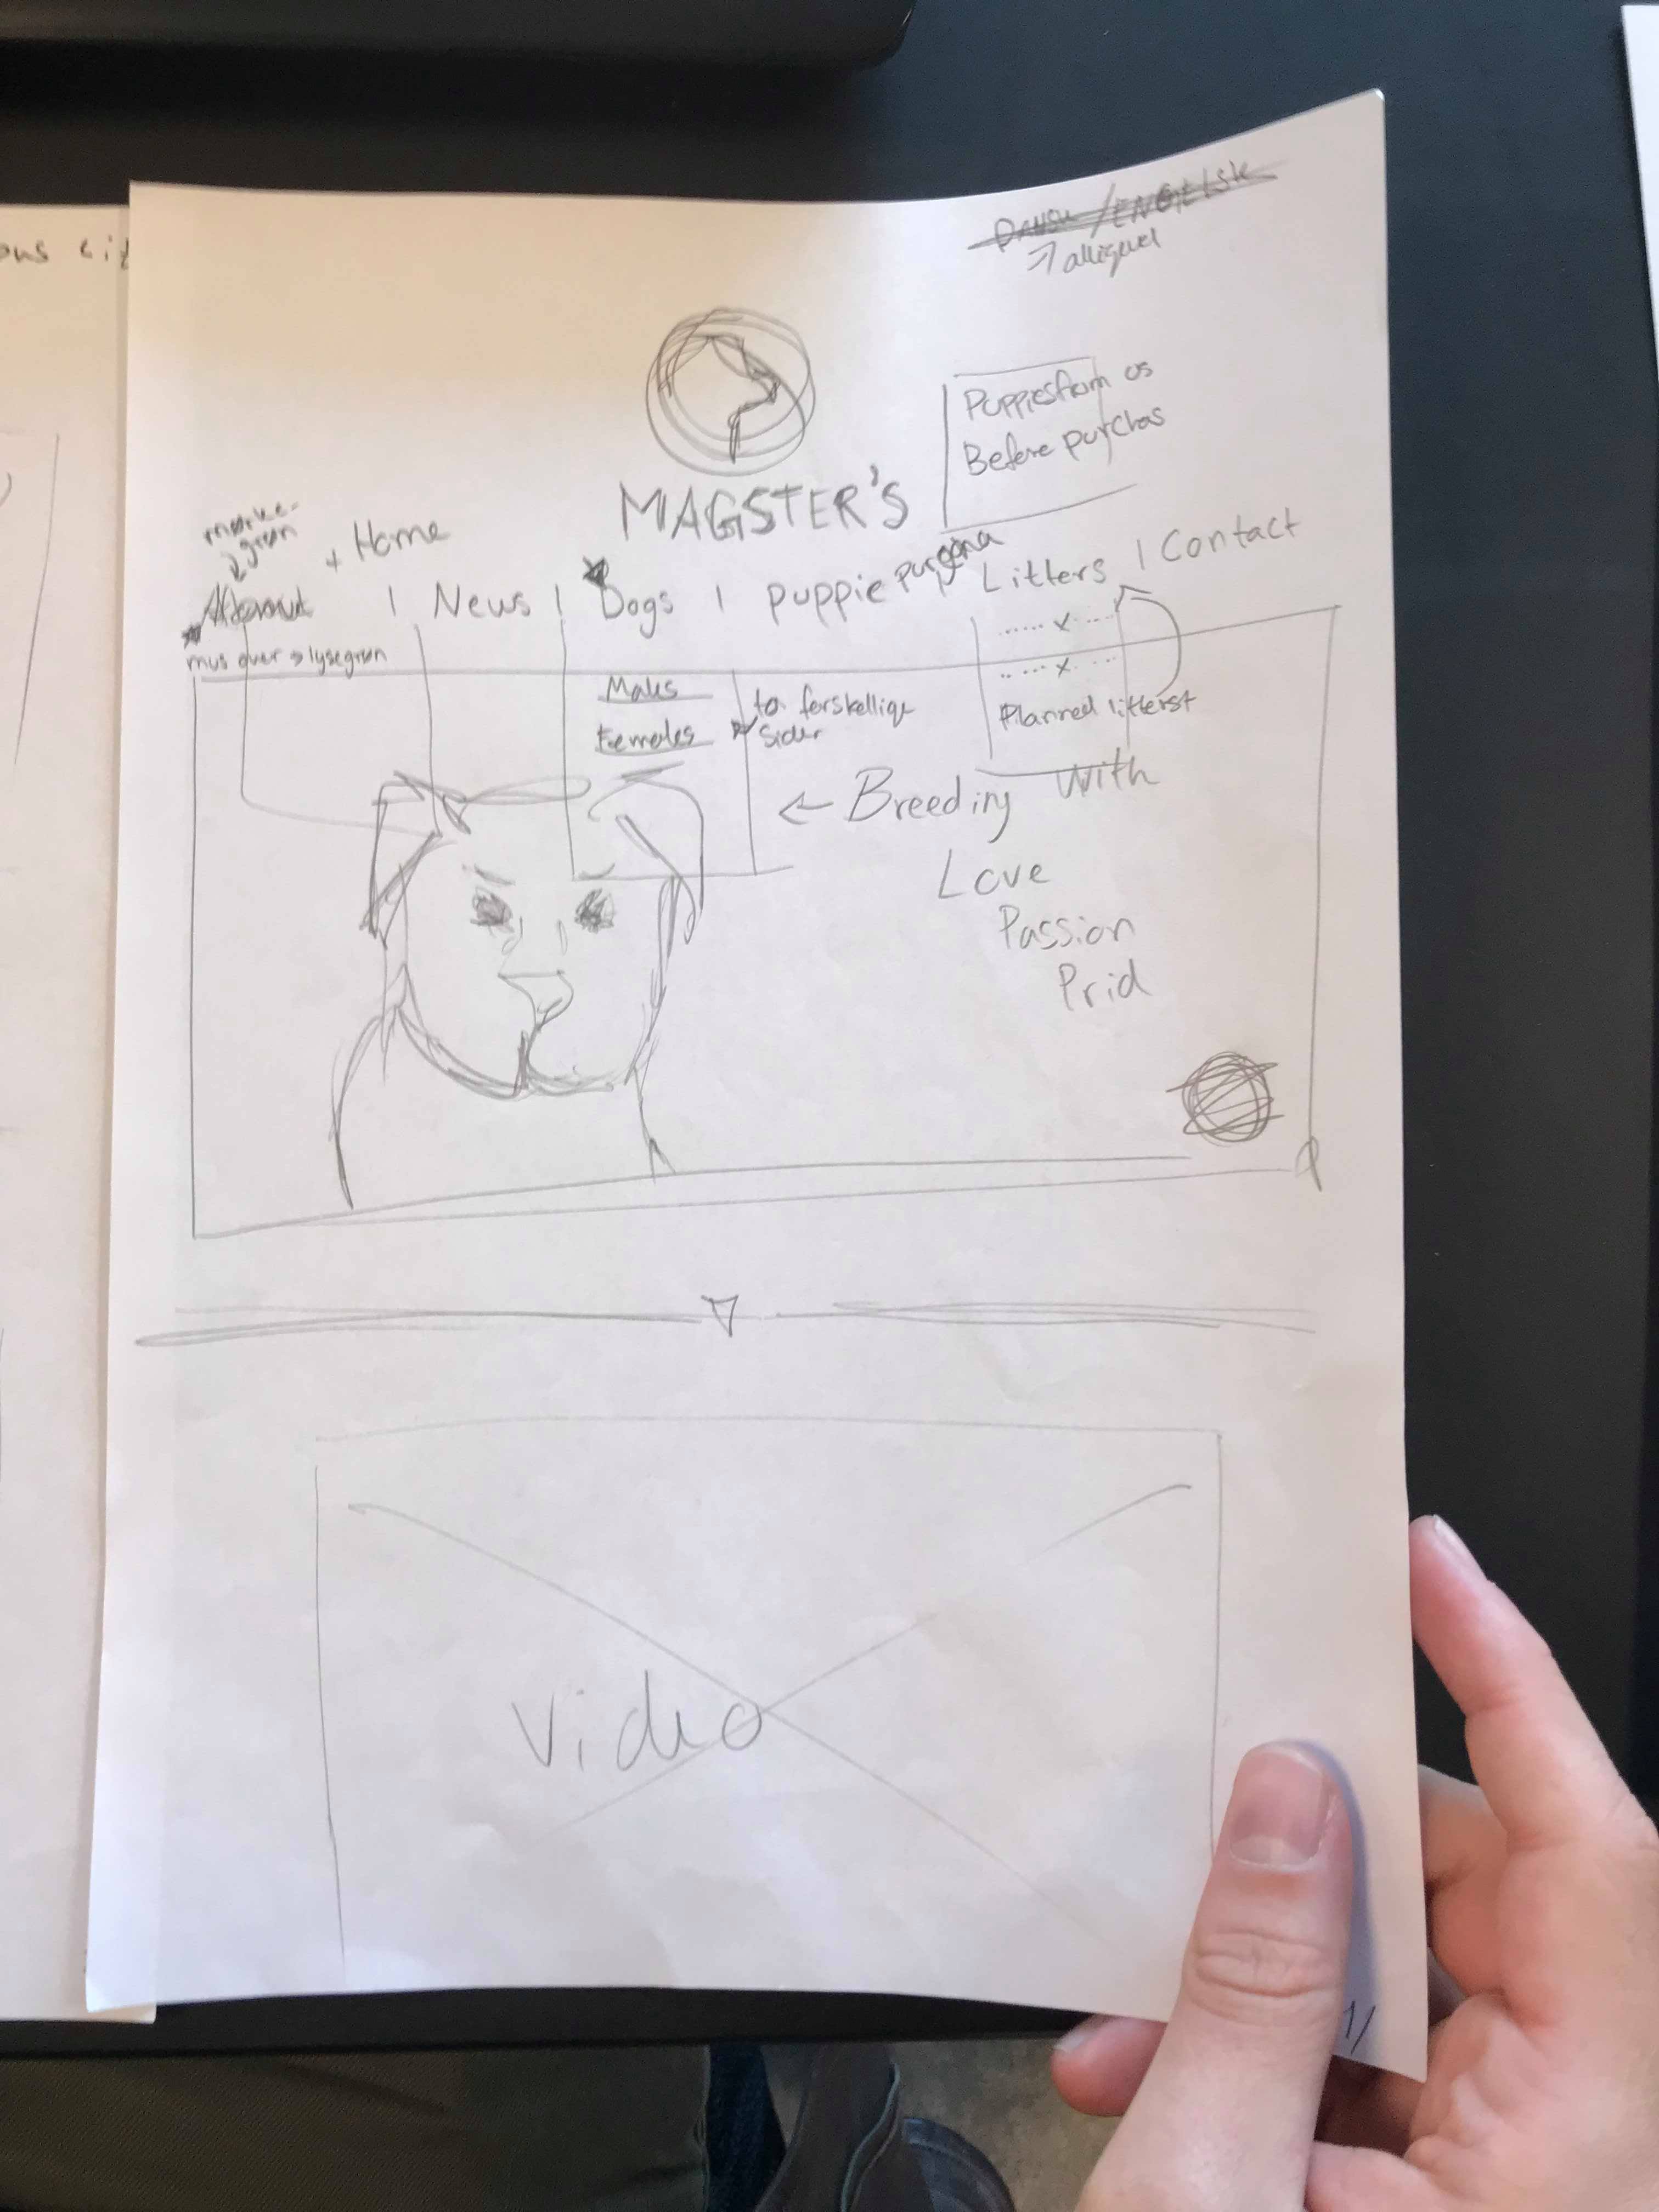 ous lit
DANSK/ENGELSK
alligevel
Puppies from us
Before purchas
MAGSTER'S
mørke-
grøn
+ Home
About | News | Dogs | Puppie | Litters | Contact
mus over → lysegrøn
Males
Females
to forskellige
sider
Planned litterst
← Breeding with
Love
Passion
Prid
Video
1/